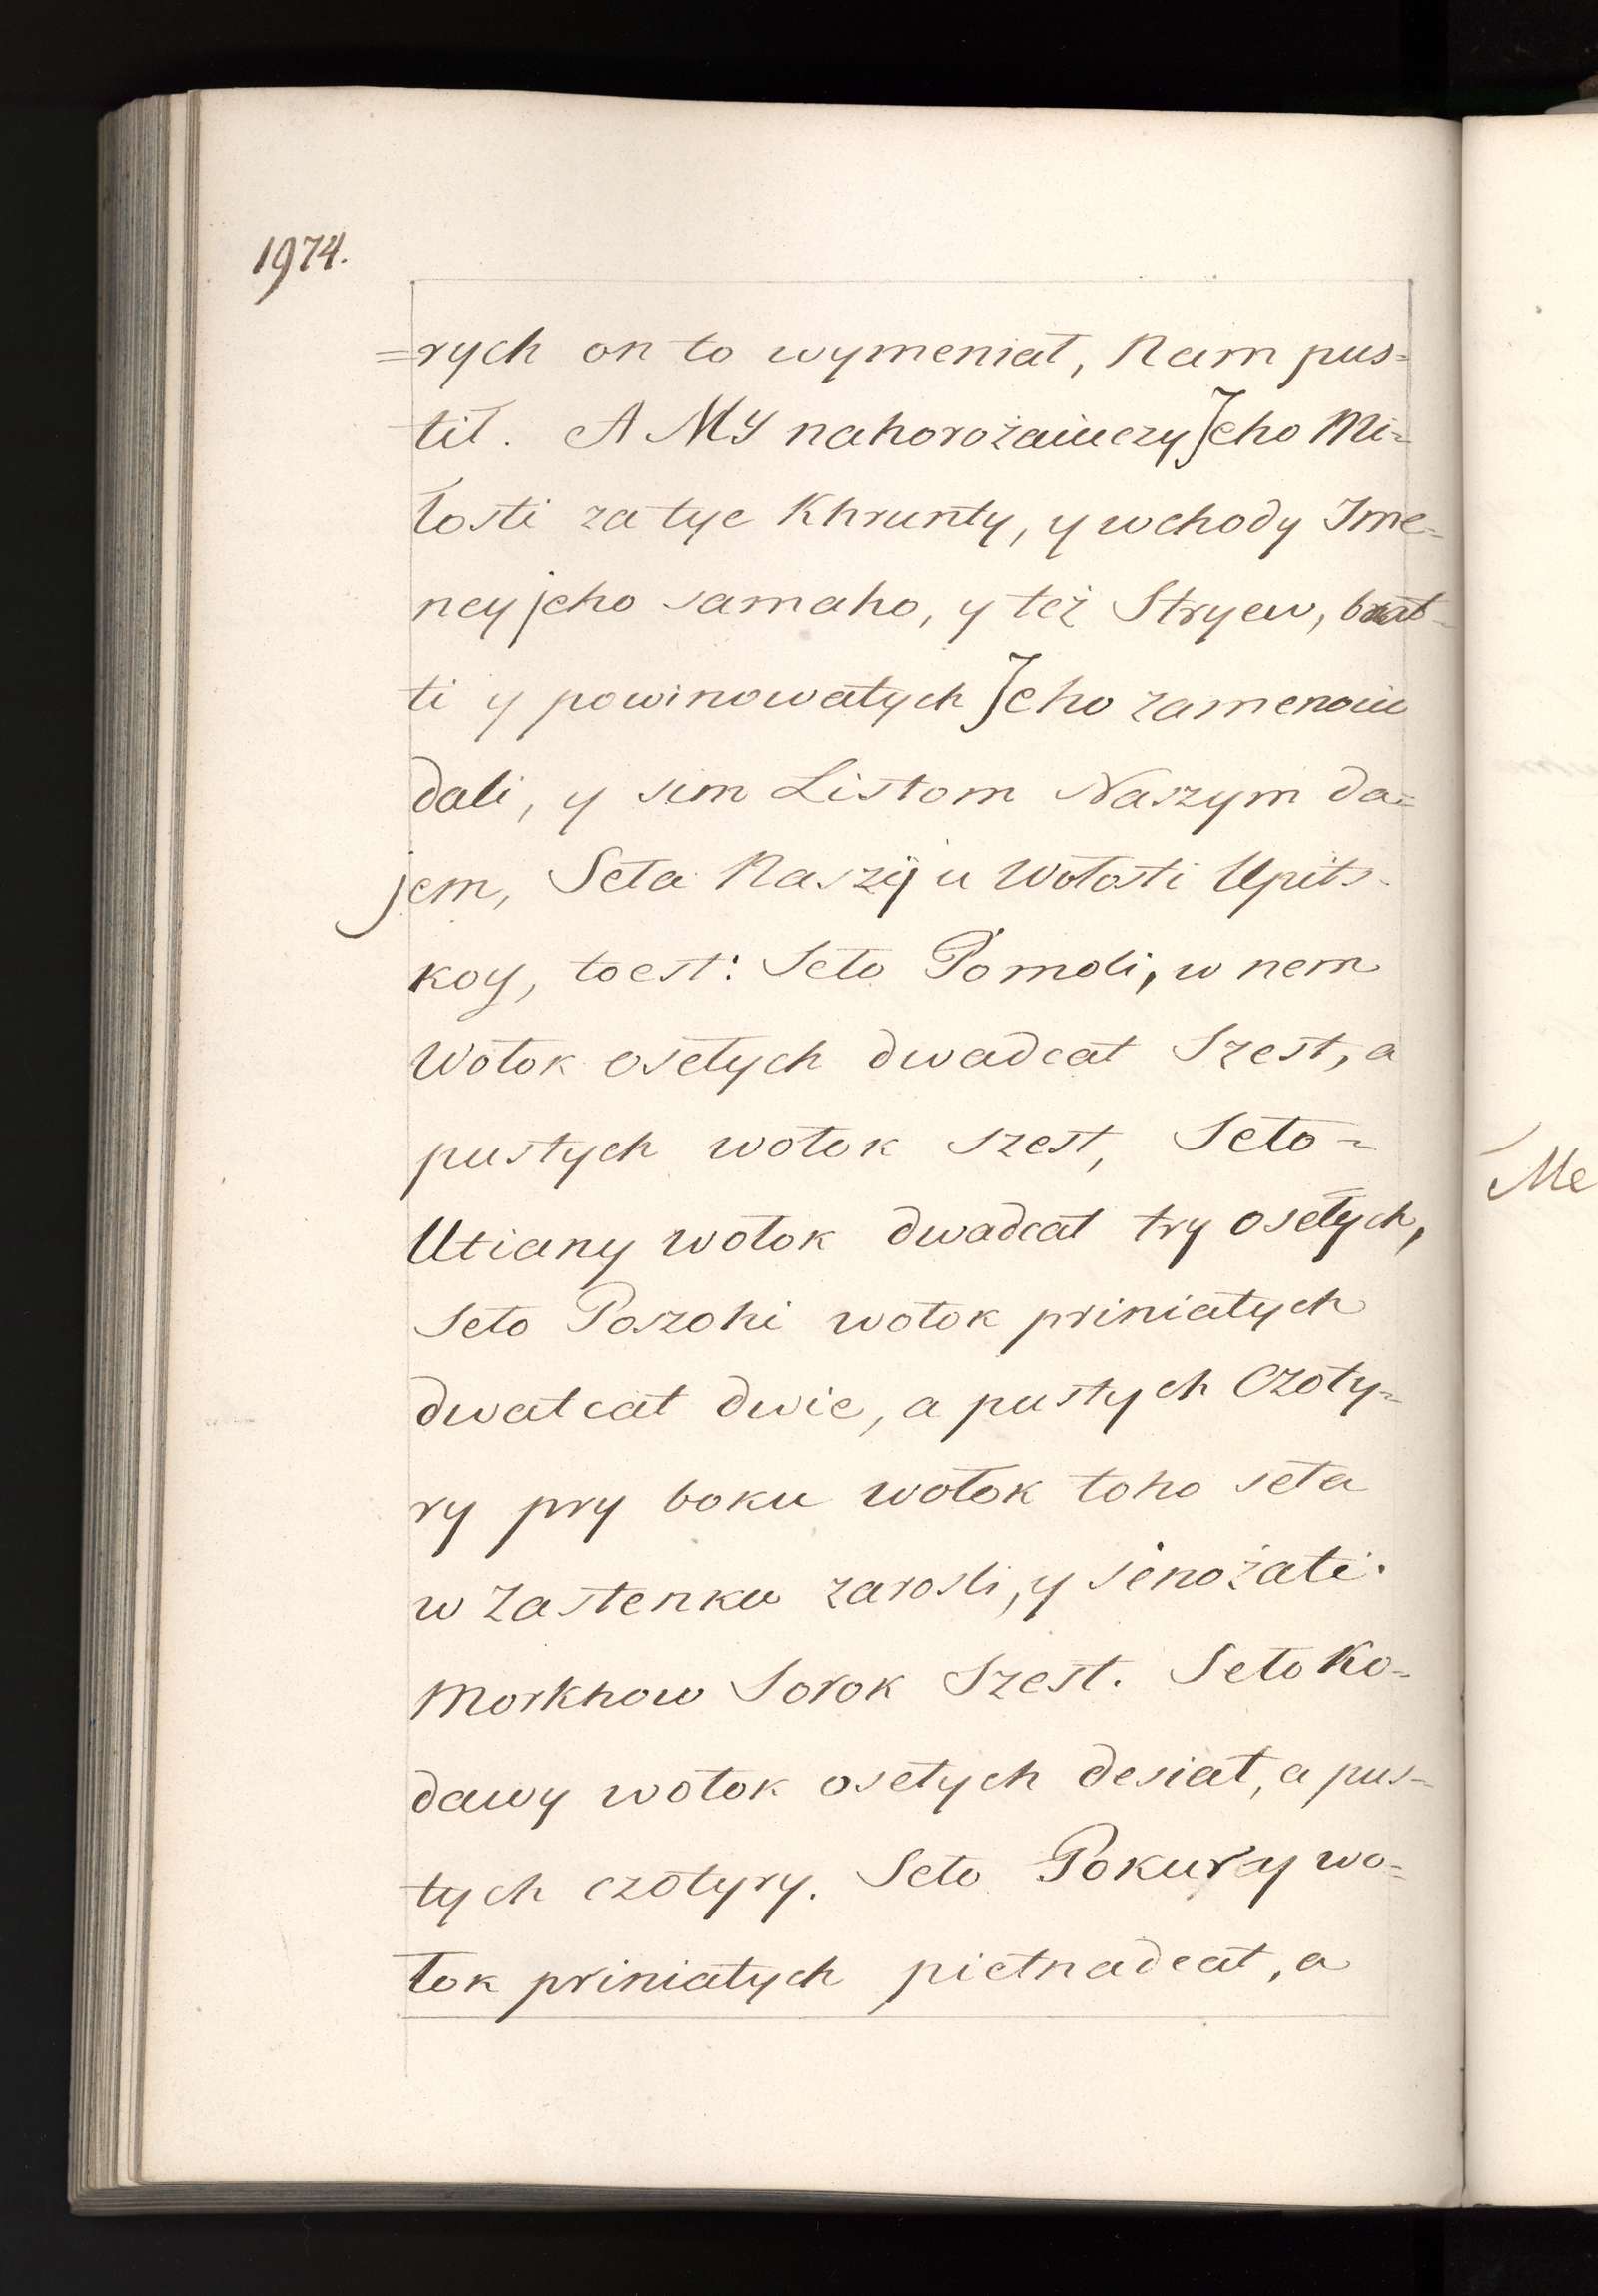 1974.
=rych on to wymeniał, Nam pus=
tił. A MY nahorożaiuczy Jeho Mi=
łosti za tye Khrunty, y wchody Ime=
ney jeho samaho, y też Stryew, brat=
ti y powinowatych Jeho zamenoiu
dali, y sim Listom Naszym da=
jem, Seła Naszyi u Wołosti Upits=
koy, toest: Seło Pomoli, w nem
Wołok osełych dwadcat Szest, a
pustych wołok szest, Seło=
Utiany wołok dwadcat try osełych,
Seło Poszohi wołok priniatych
dwatcat dwie, a pustych Czoty=
ry pry boku wołok toho seła
w Zastenku zarosli, y senożati.
Morkhow Sorok Szest. Seło Ko=
dawy wołok osełych desiat, a pus=
tych czotyry. Seło Pokury wo=
łok priniatych pietnadcat, a
Me